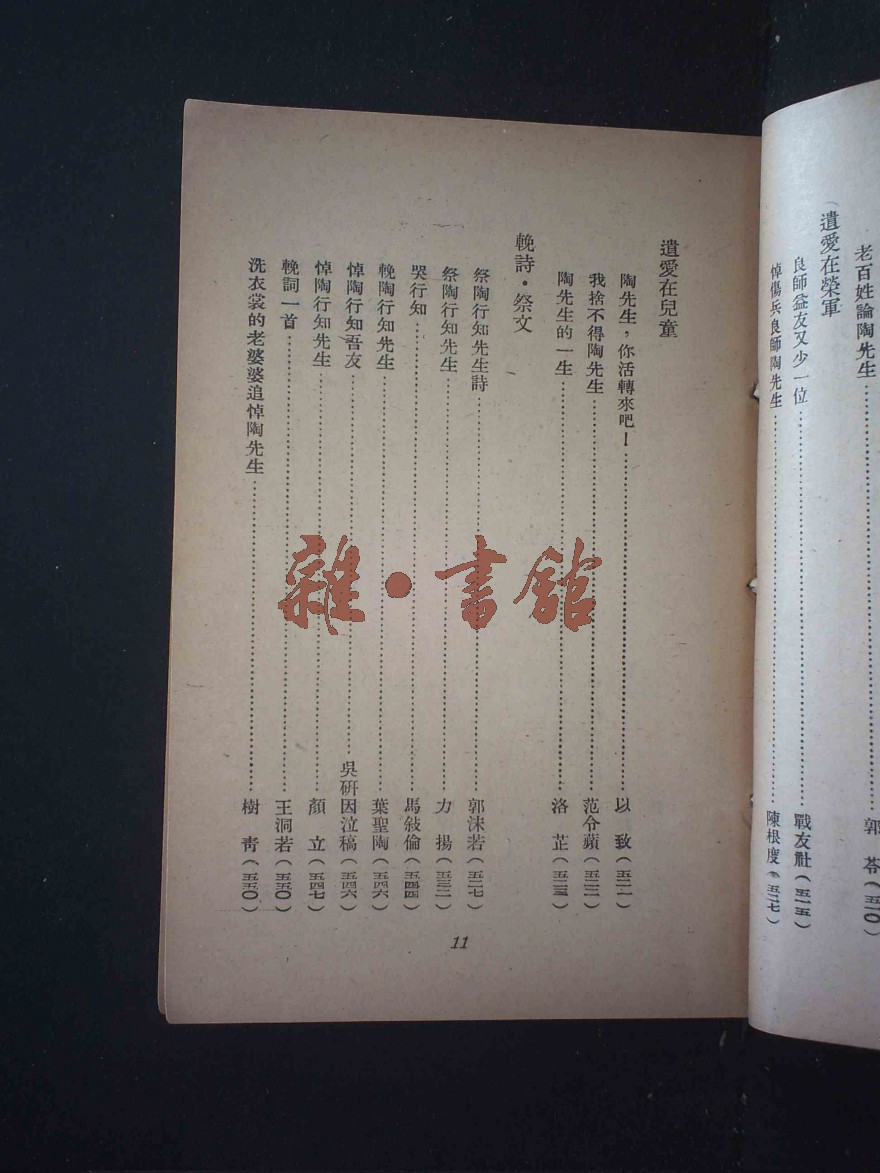 老百姓論陶先生……郭　苓（五一〇）
遺愛在榮軍
良師益友又少一位……戰友社（五一五）
悼傷兵良師陶先生……陳根度（五一七）
遺愛在兒童
陶先生，你活轉來吧！……以　致（五二一）
我捨不得陶先生……范令蘋（五二二）
陶先生的一生……洛　芷（五二三）
輓詩・祭文
祭陶行知先生詩……郭沫若（五二七）
祭陶行知先生……力　揚（五三二）
哭行知……馬敍倫（五四四）
輓陶行知先生……葉聖陶（五四六）
悼陶行知吾友……吳研因泣稿（五四六）
悼陶行知先生……顏　立（五四七）
輓詞一首……王洞若（五五〇）
洗衣裳的老婆婆追悼陶先生……樹　青（五五〇）
11
雜・書館